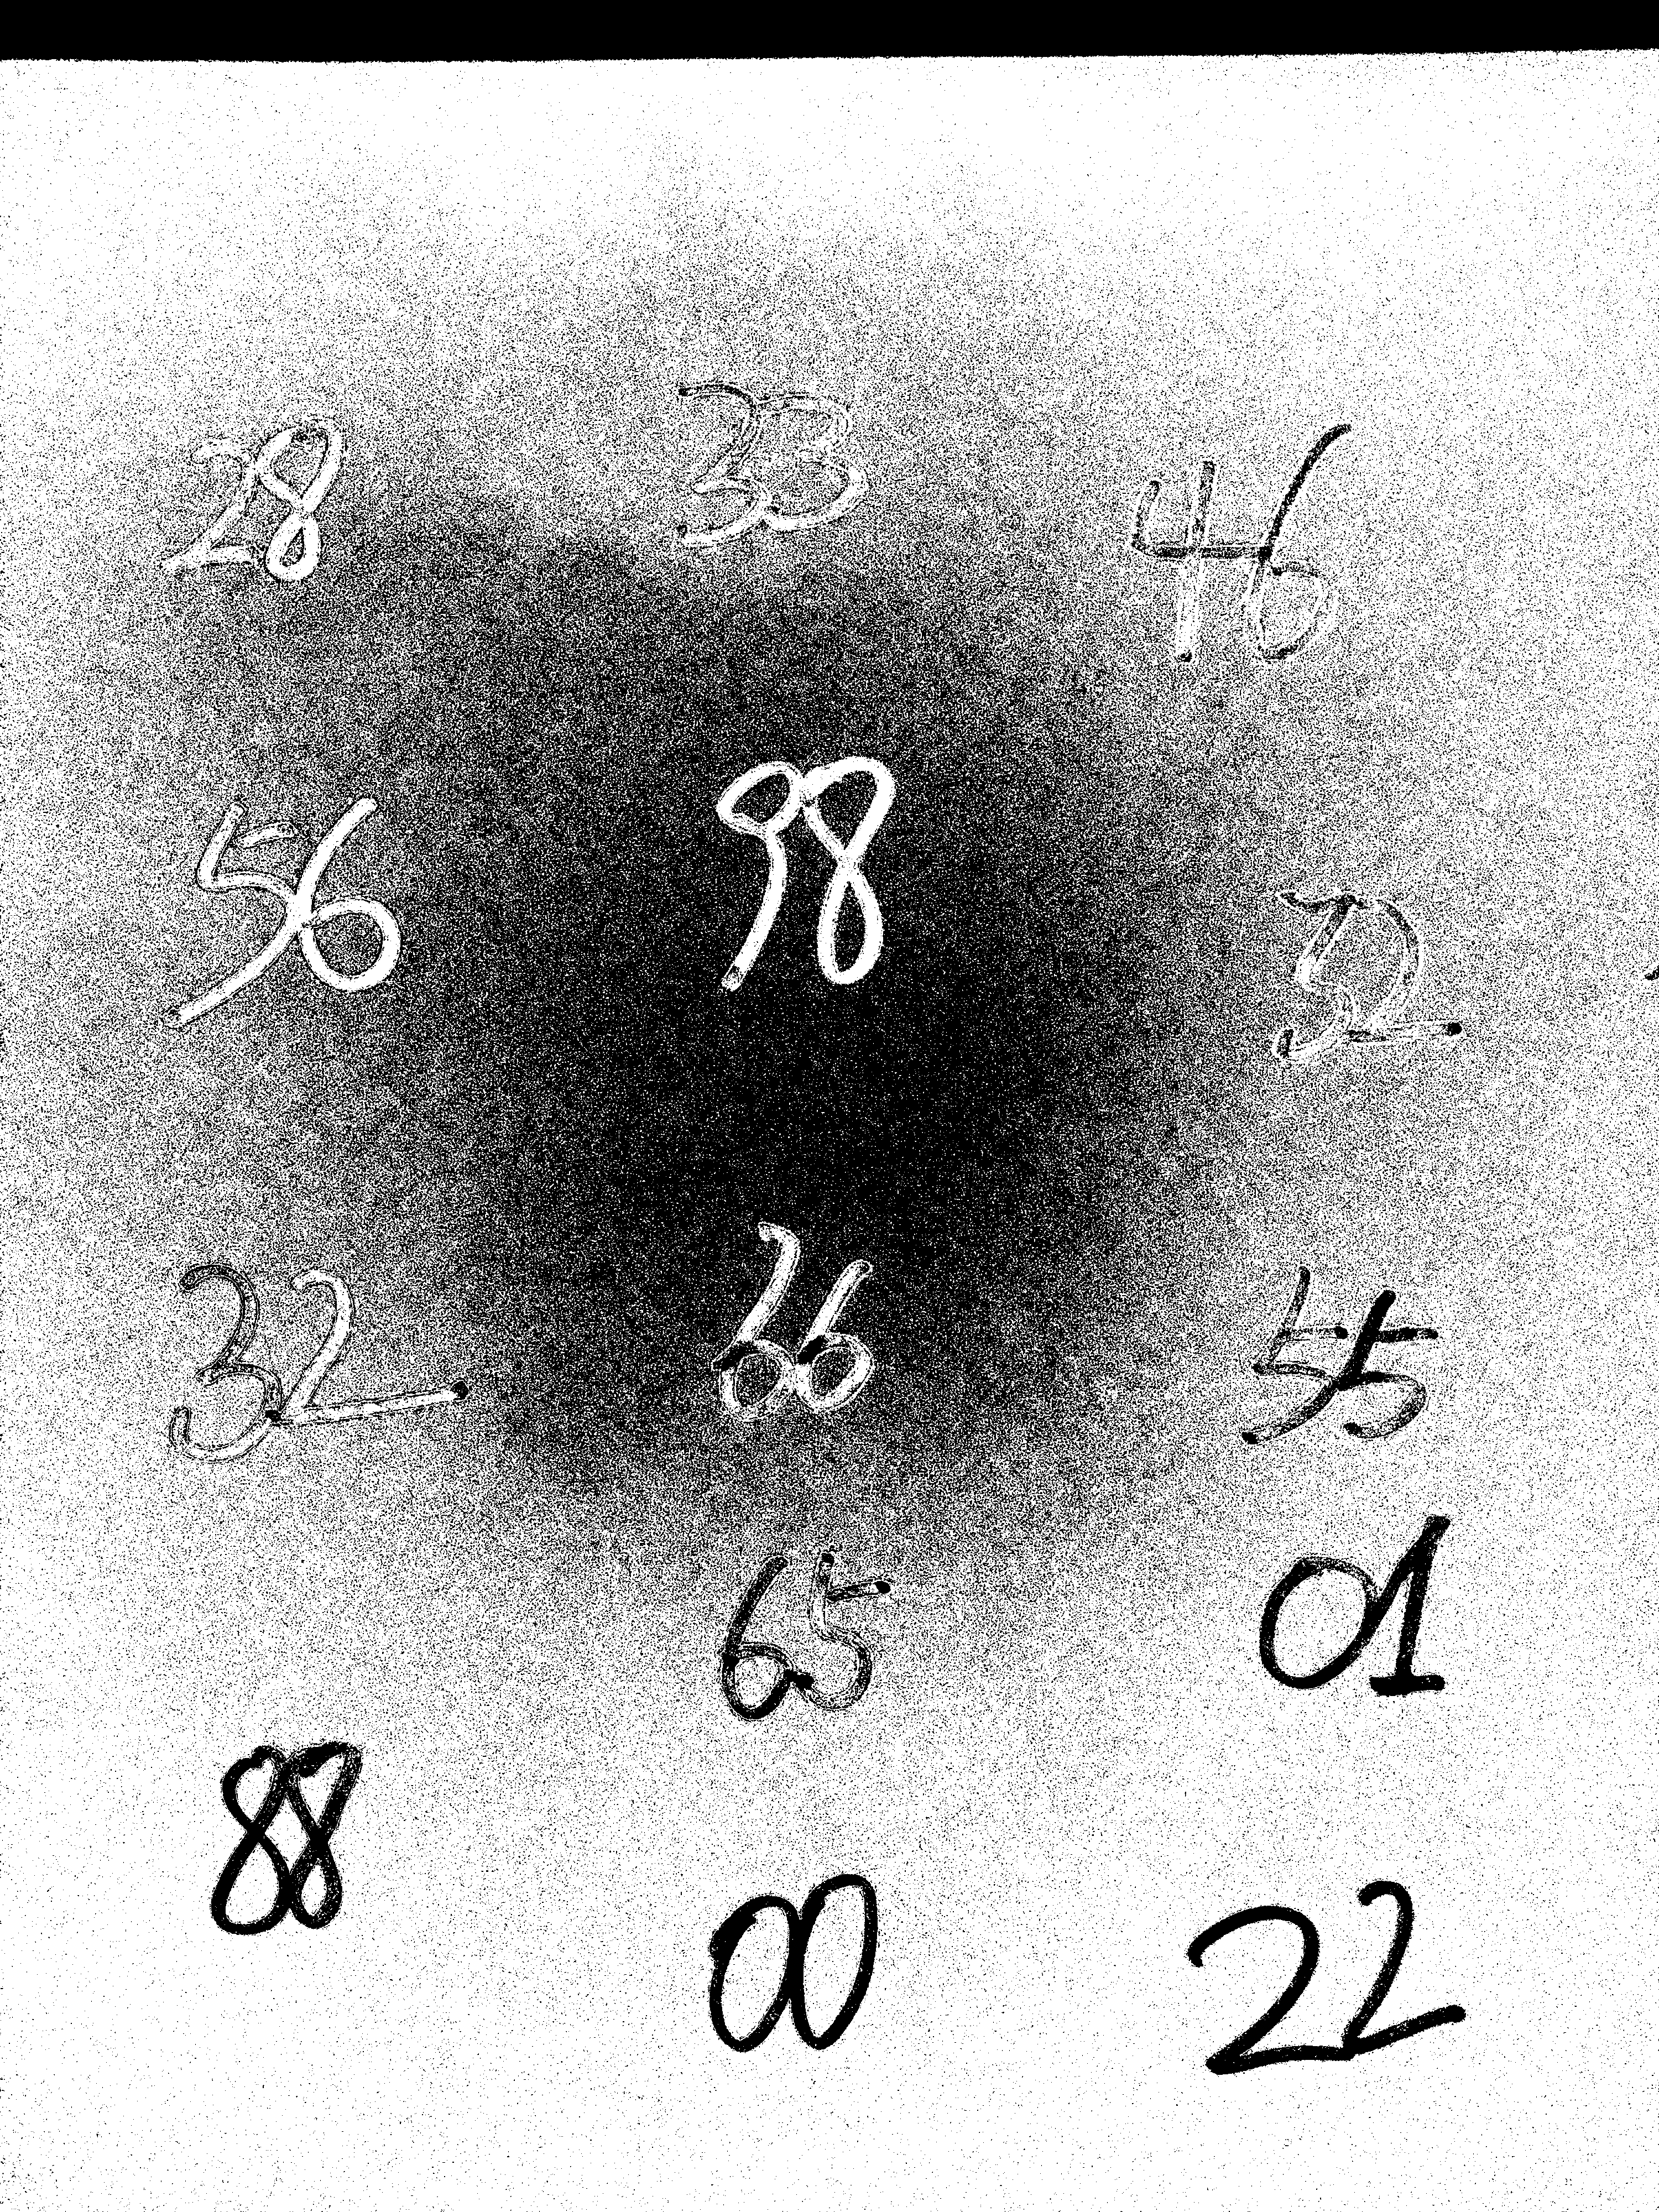 28 33 46
56 98 32
32 66 55
65 01
88 00 22